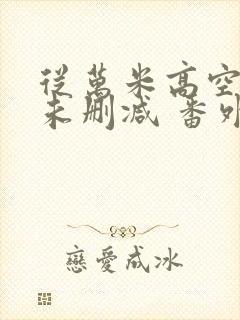 從萬米高空
未刪減 番外
戀愛成冰